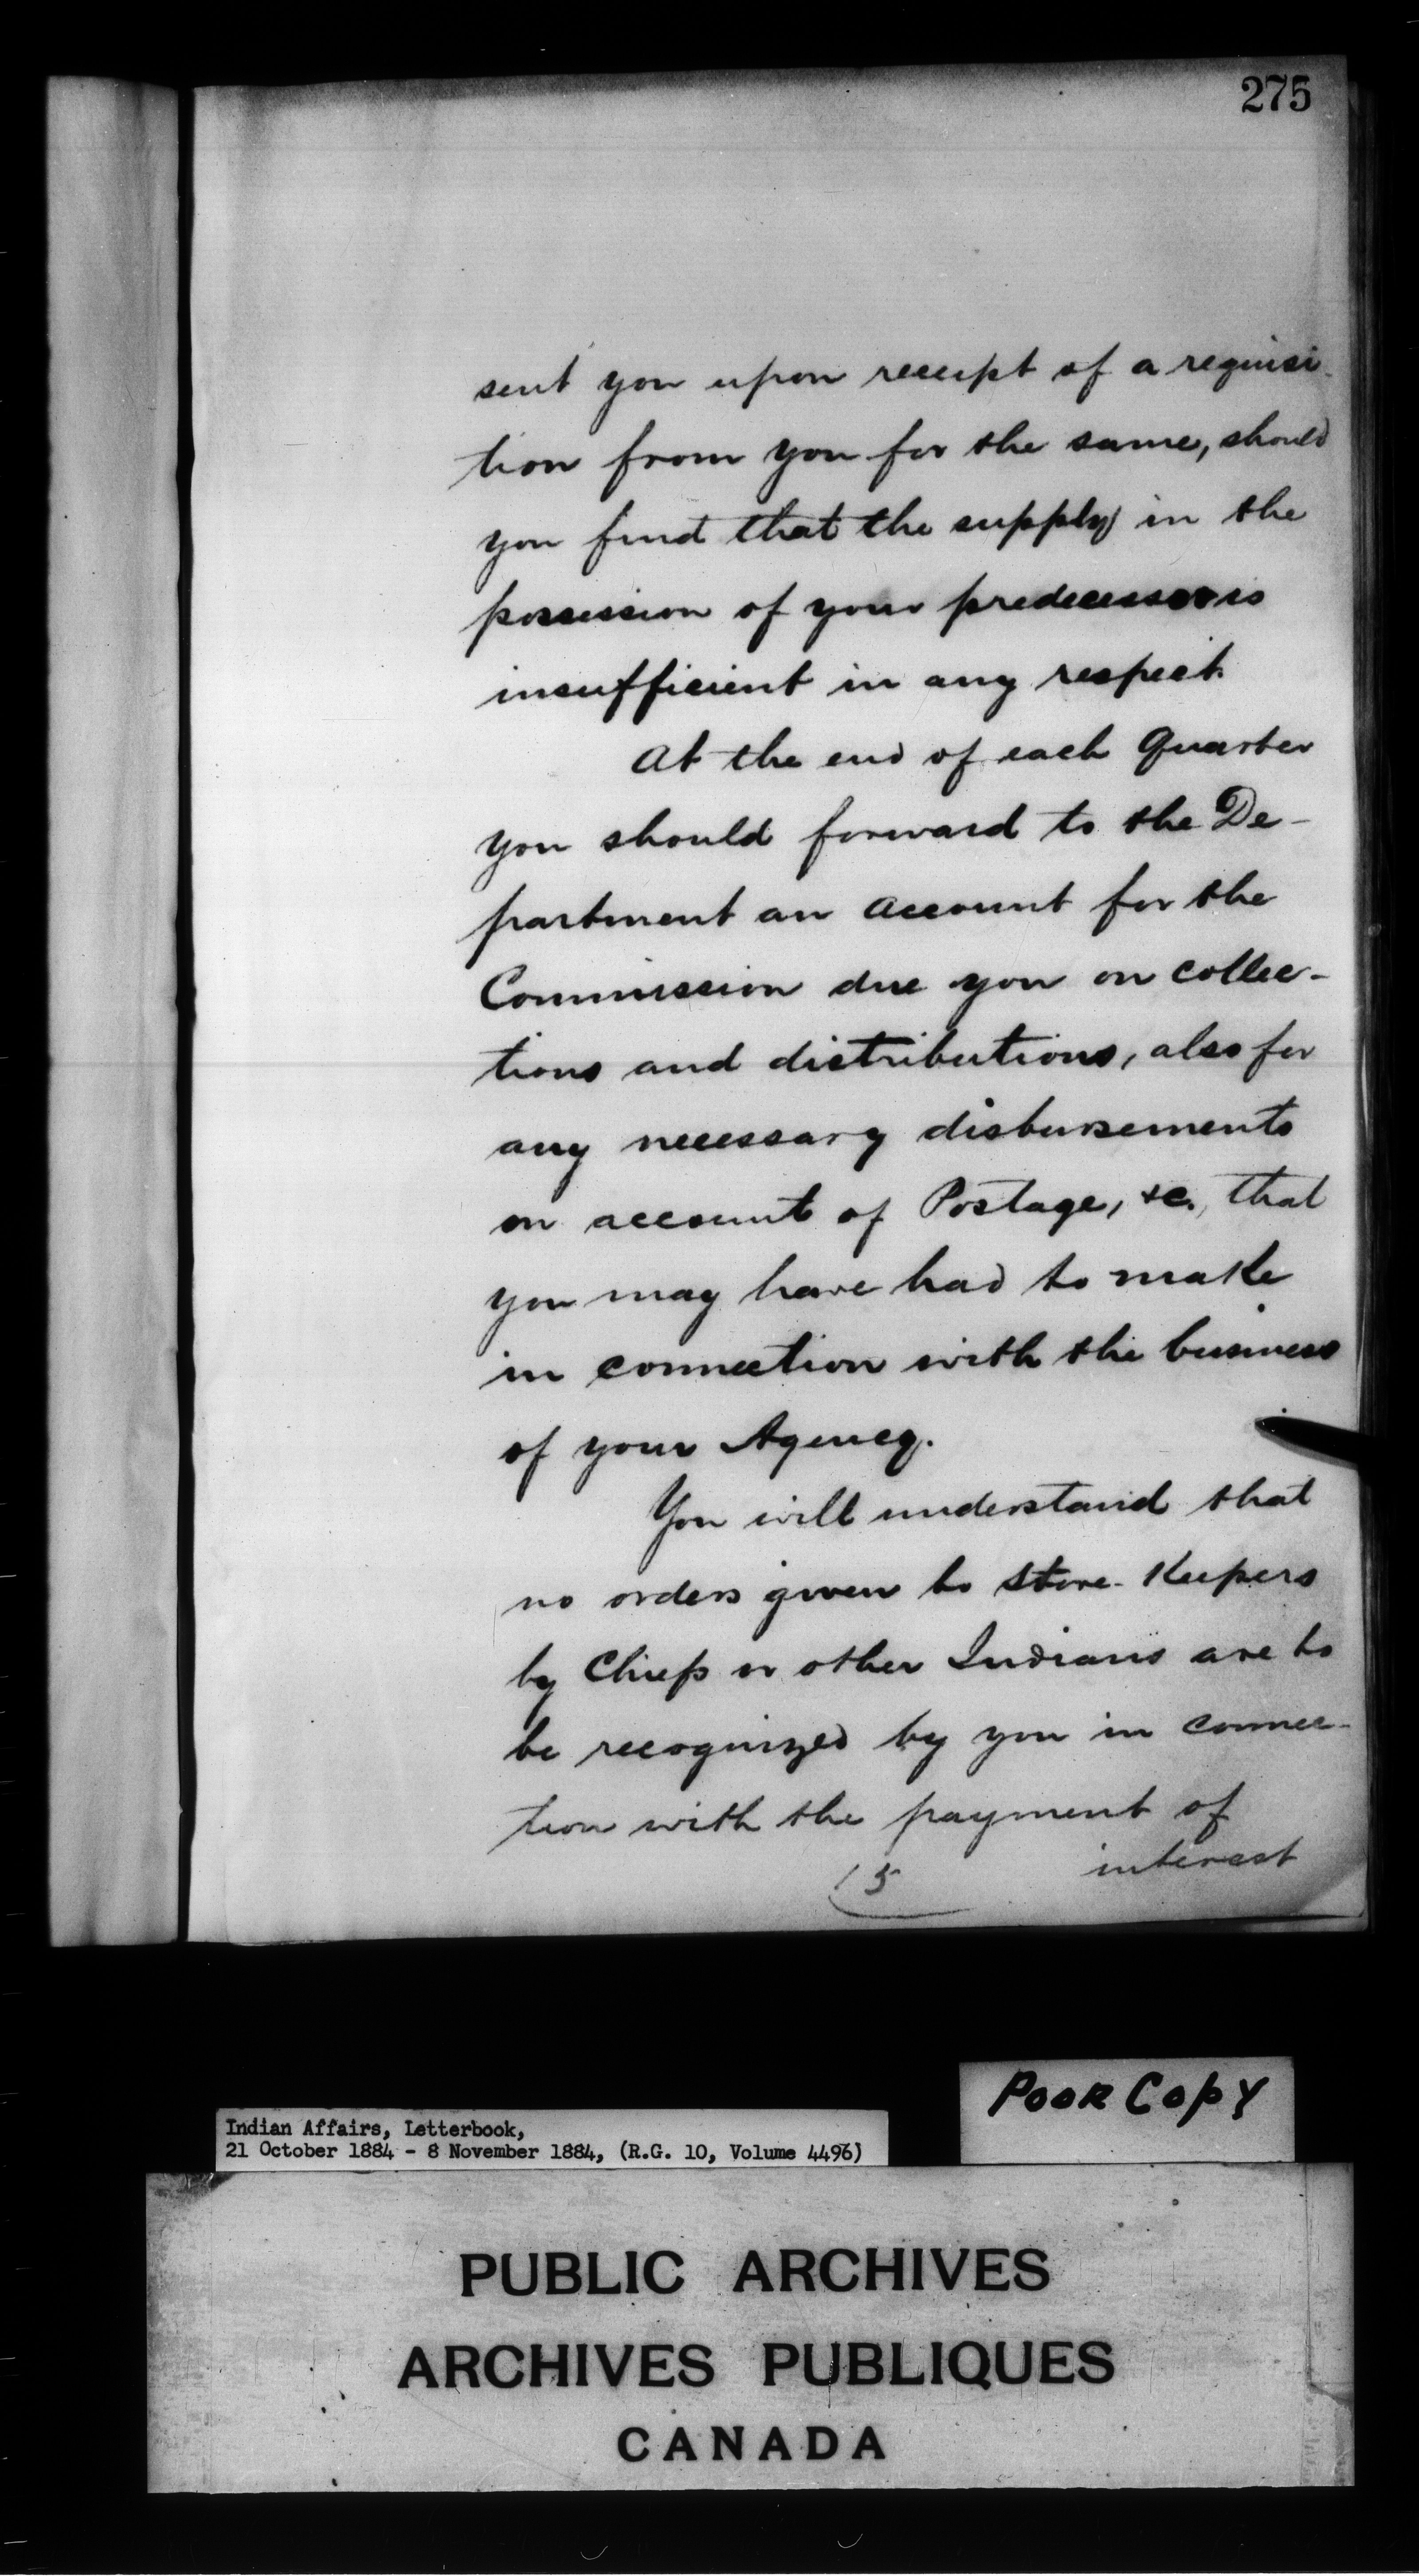 275
sent you upon receipt of a requisi-
tion from you for the same, should
you find that the supply in the
possession of your predecessor is
insufficient in any respect.
At the end of each Quarter
you should forward to the De-
partment an account for the
Commission due you on collec-
tions and distributions, also for
any necessary disbursements
on account of Postage, &c., that
you may have had to make
in connection with the business
of your Agency.
You will understand that
no orders given to Store-Keepers
by Chiefs or other Indians are to
be recognized by you in connec-
tion with the payment of
interest
15
POOR COPY
Indian Affairs, Letterbook,
21 October 1884 - 8 November 1884, (R.G. 10, Volume 4496)
PUBLIC ARCHIVES
ARCHIVES PUBLIQUES
CANADA